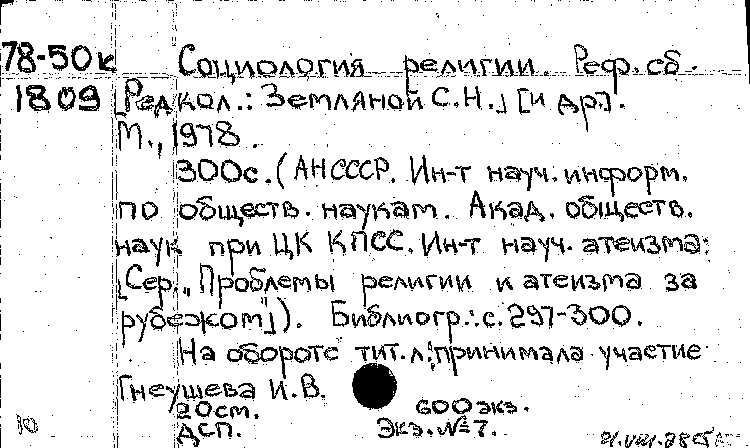 78-50к Социология религии. Реф. сб.
1809 [Редкол.: Земляной С.Н.] [и др.].
М., 1978.
300с. (АНСССР. Ин-т науч. информ.
по обществ. наукам. Акад. обществ.
наук при ЦК КПСС. Ин-т науч. атеизма;
[Сер. „Проблемы религии и атеизма за
рубежом"]). Библиогр.: с. 297-300.
На обороте тит. л.: принимала участие
Гнеушева И.В.
20см. 600 экз.
ДСП. Экз. №7.
10